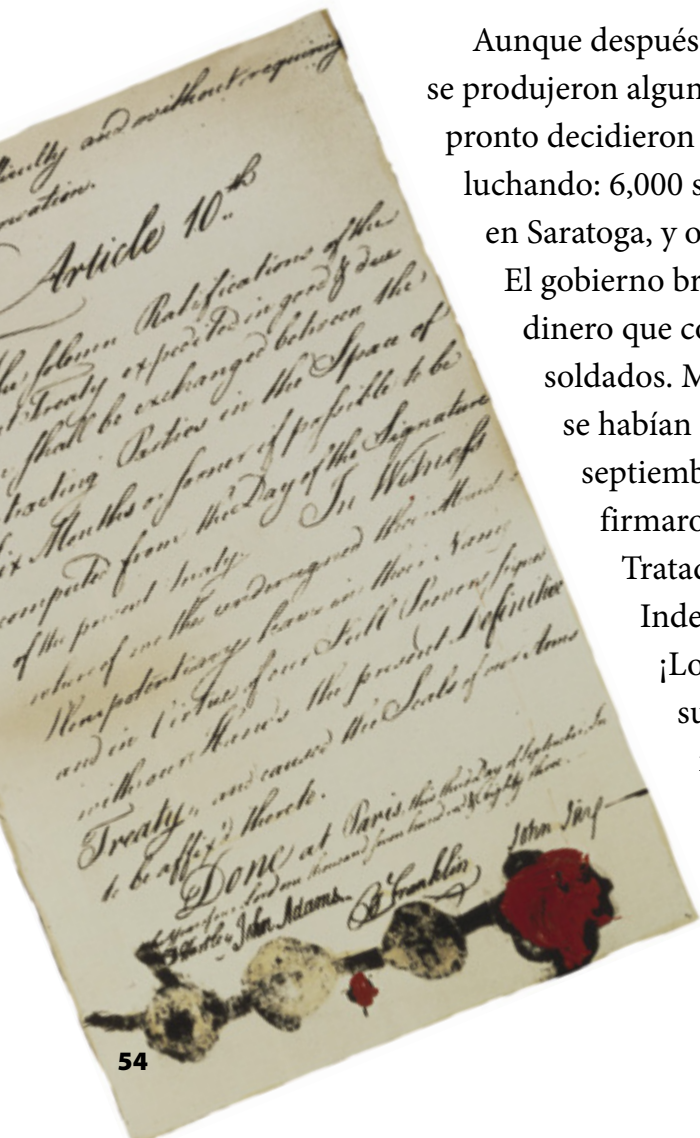 Aunque después
se produjeron algun
pronto decidieron
luchando: 6,000 s
en Saratoga, y o
El gobierno br
dinero que co
soldados. M
se habían
septiemb
firmaro
Tratad
Inde
¡Lo
su
iculty and without requiring
Article 10th
the solemn Ratifications of the
t Treaty expedited in good & due
shall be exchanged between the
tracting Parties in the Space of
ix Months or sooner if possible to be
computed from the Day of the Signature
of the present Treaty. In Witness
whereof we the undersigned their
Plenipotentiary have in their Name
and in Virtue of our Full Powers
with our Hands the present Definitive
Treaty, and caused the Seals of our Arms
to be affix'd thereto.
Done at Paris, this third Day of September, In
the Year of our Lord one thousand seven hundred & Eighty three.
Hartley John Adams B Franklin John Jay
54